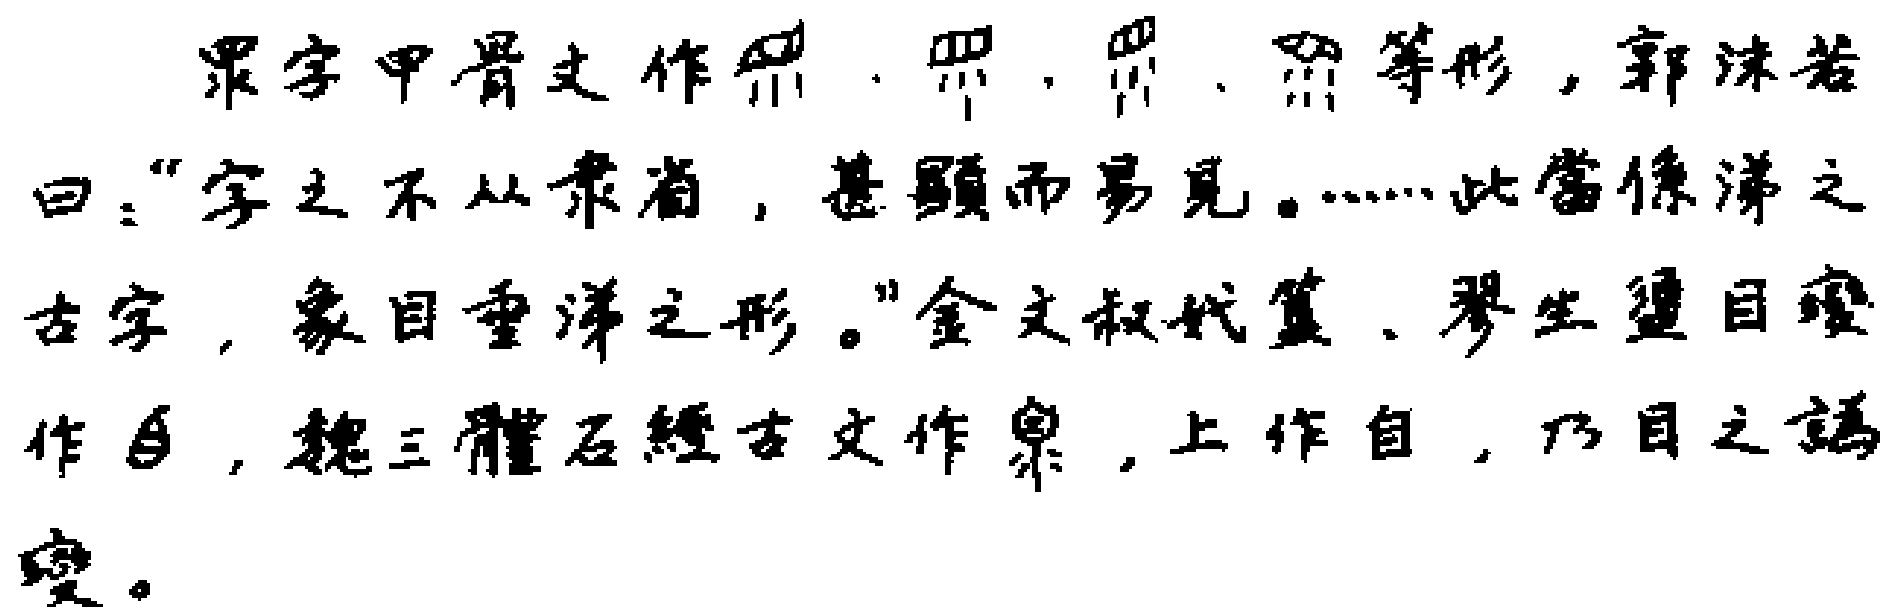 眔字甲骨文作、、、等形，郭沫若
曰：“字之不从隶省，甚顯而易見。……此當係涕之
古字，象目垂涕之形。”金文叔簋、翏生盨目變
作，魏三體石經古文作，上作自，乃目之譌
變。